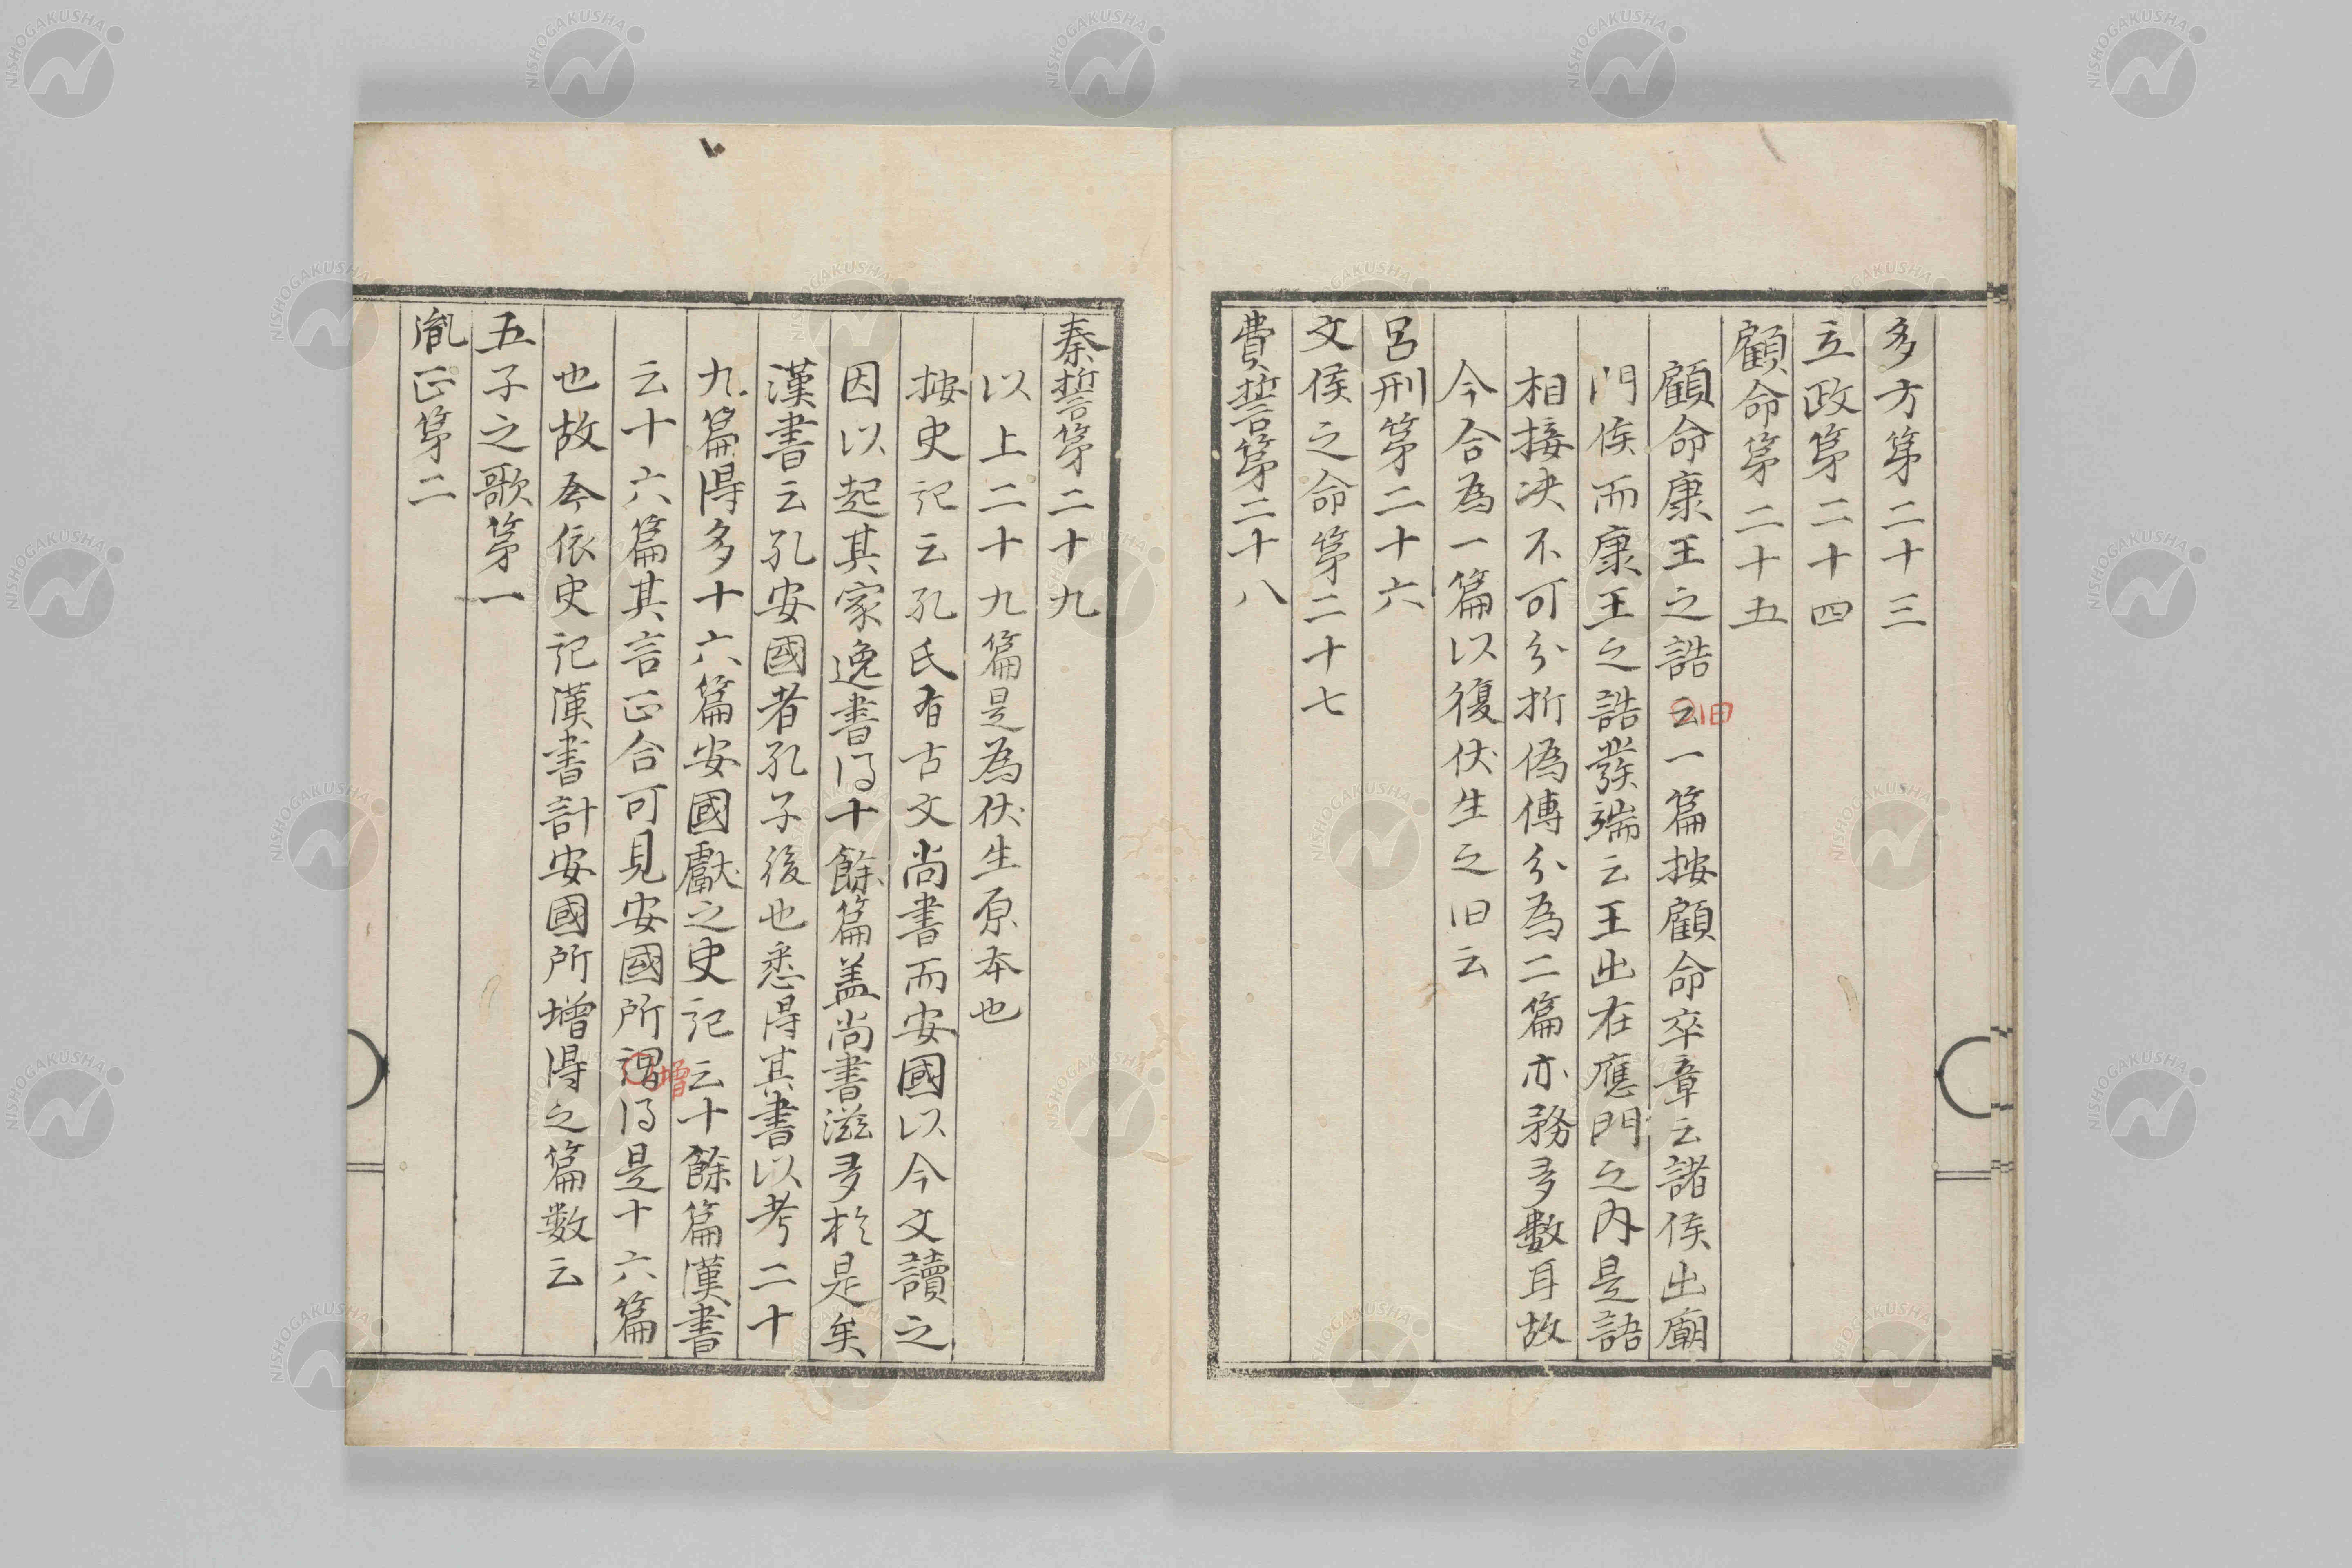 多方第二十三
立政第二十四
顧命第二十五
顧命康王之誥云旧一篇按顧命卒章云諸侯出廟
門俟而康王之誥發端云王出在應門之内是語
相接决不可分折偽傳分為二篇亦務多數耳故
今合為一篇以復伏生之旧云
呂刑第二十六
文侯之命第二十七
費誓第二十八
秦誓第二十九
以上二十九篇是為伏生原本也
按史記云孔氏有古文尚書而安國以今文讀之
因以起其家逸書得十餘篇盖尚書滋多於是矣
漢書云孔安國者孔子後也悉得其書以考二十
九篇得多十六篇安國獻之史記云十餘篇漢書
云十六篇其言正合可見安國所謂增得是十六篇
也故今依史記漢書計安國所增得之篇数云
五子之歌第一
胤正第二
NISHOGAKUSHA